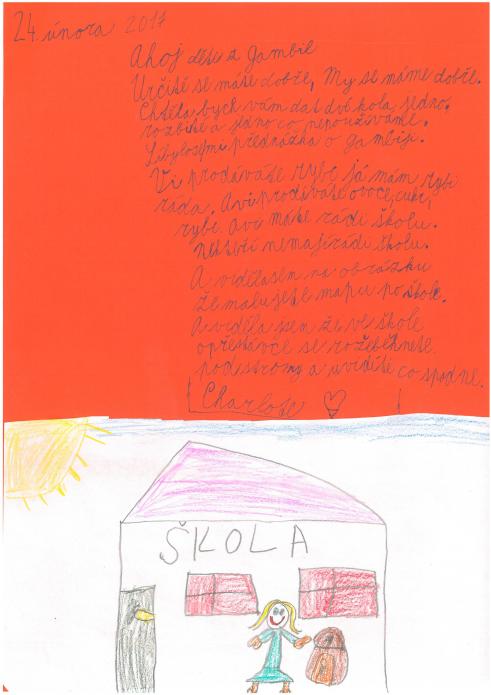 24. února 2017
Ahoj děti z Gambie
Určitě se máte dobře, My se máme dobře.
Chtěla bych vám dat dvě kola, jedno.
rozbité a jedno co nepoužíváme.
Líbylosemi přednážka o gambiji.
Vi prodáváte rybi já mám rybi
ráda. Avi prodáváte ovoce, cukr,
rybi. Avi máte rádi školu.
Někteří nemají rádi školu.
A viděla sem na obrázku
že malujete mapu po škole.
A viděla jsem že ve škole
opřestávce se rozeběhnete
pod stromy a uvidíte co spadne.
Charlote
ŠKOLA